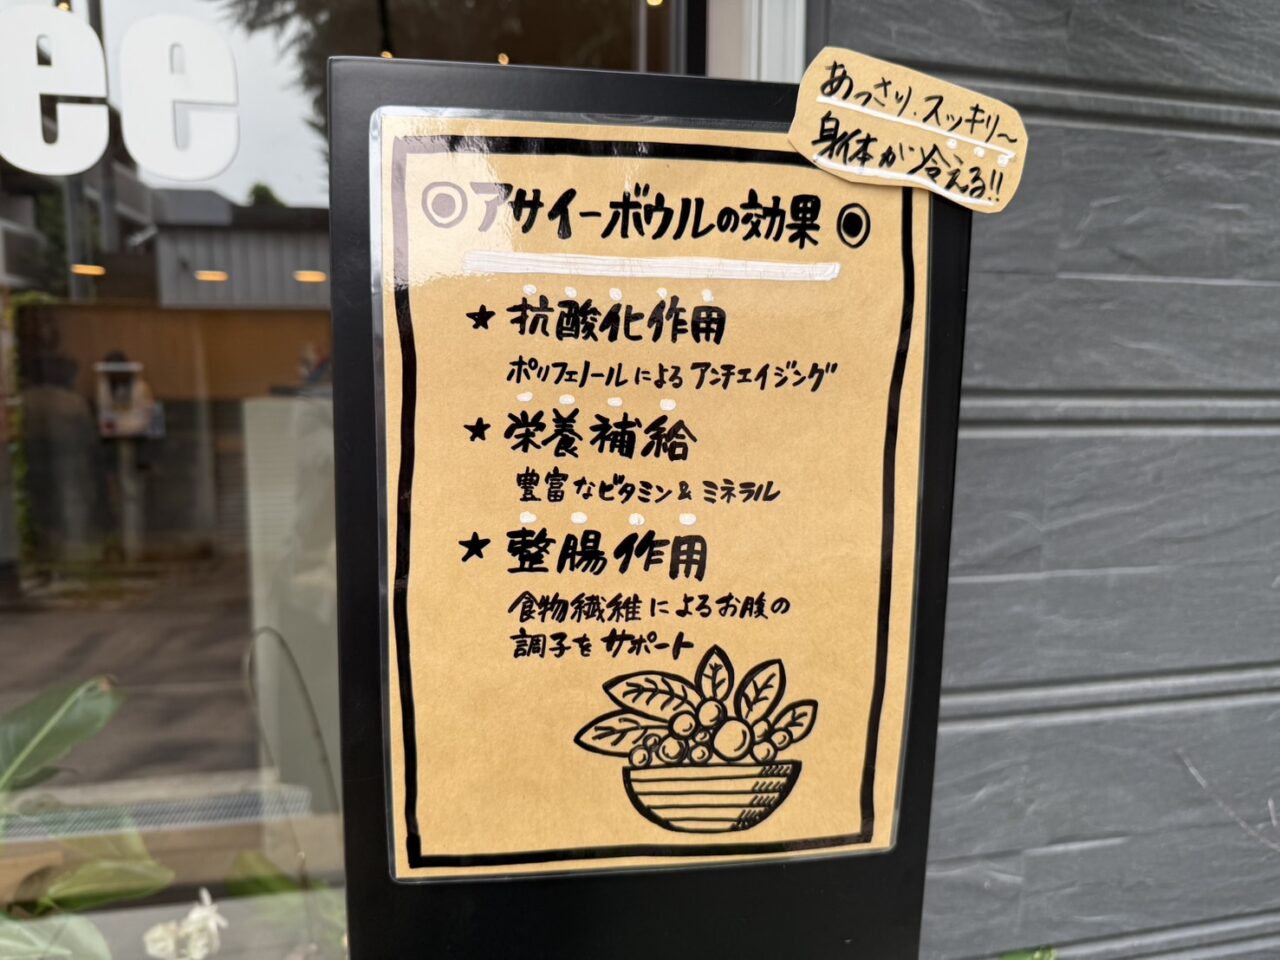 ee
あっさり、スッキリ〜
身体が冷える!!
◎アサイーボウルの効果◎
★抗酸化作用
ポリフェノールによるアンチエイジング
★栄養補給
豊富なビタミン&ミネラル
★整腸作用
食物繊維によるお腹の
調子をサポート